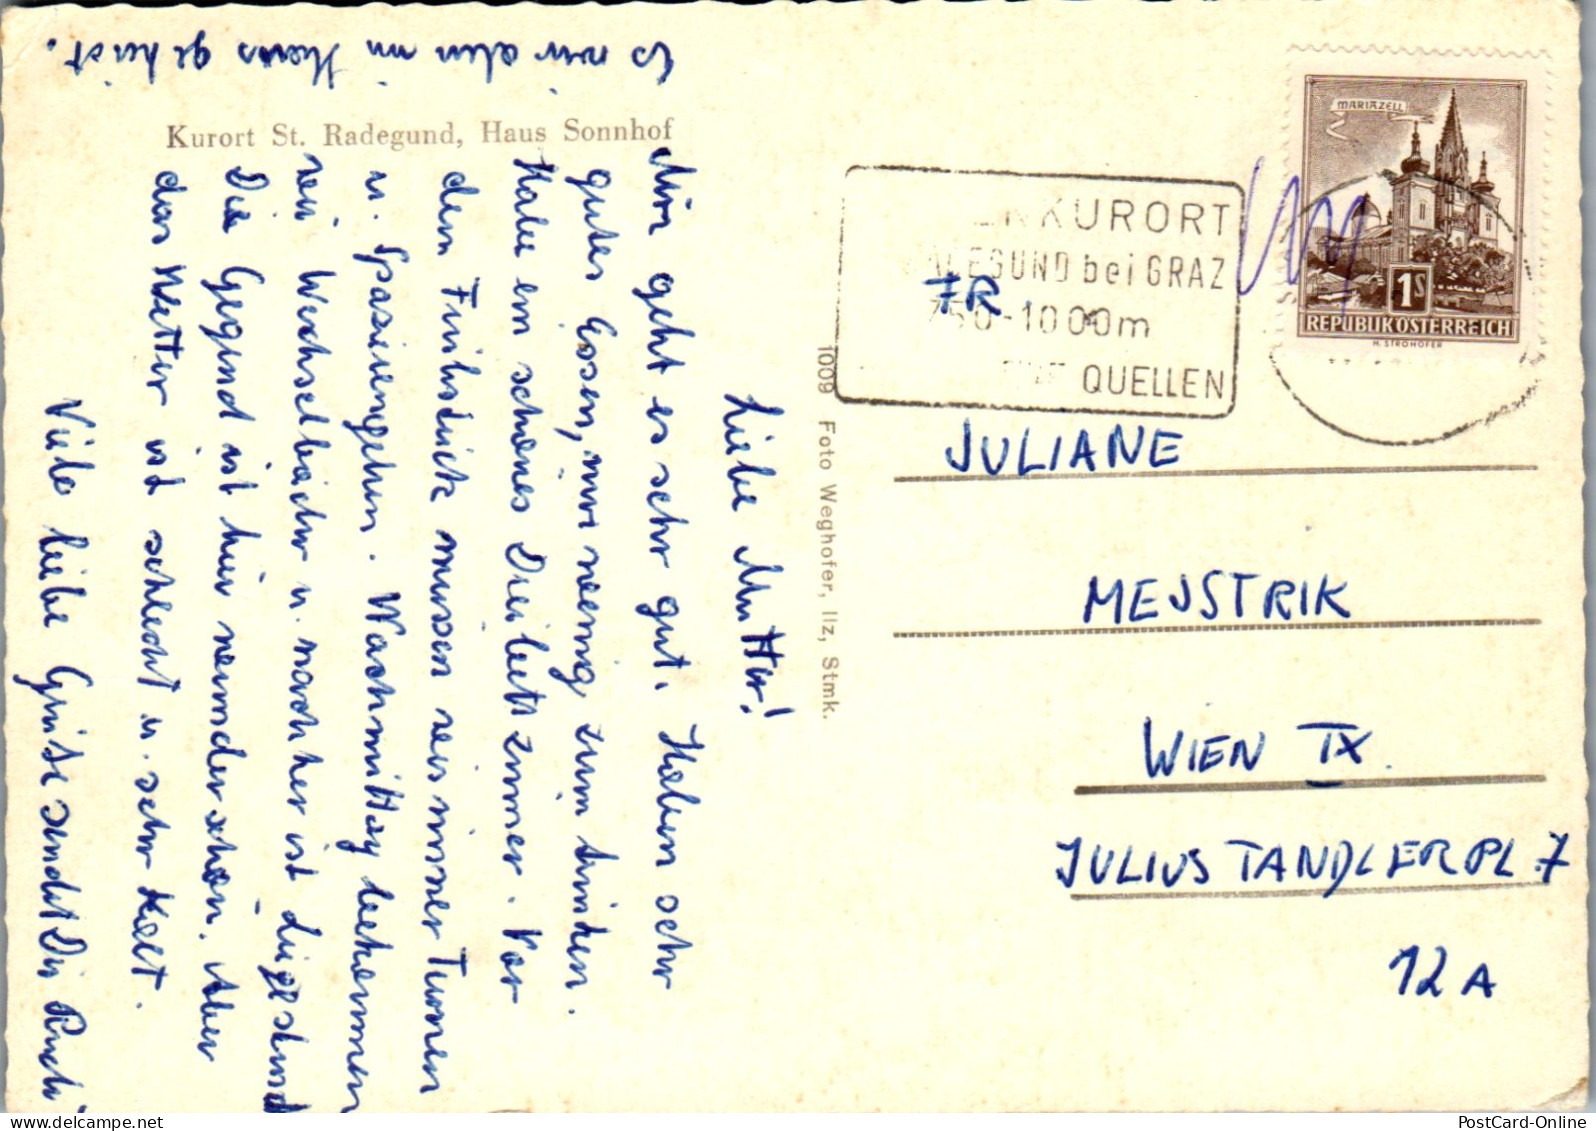 Kurort St. Radegund, Haus Sonnhof
Liebe Mutter!
Mir geht es sehr gut. Haben sehr
gutes Essen, nur wenig zum trinken.
Habe ein schönes Dreibettzimmer. Vor
dem Frühstück müssen wir immer Turnen
u. Spazierengehen. Nachmittag bekommen
wir Wechselbäder u. nachher ist Liegestund
Die Gegend ist hier wunderschön. Aber
das Wetter ist schlecht u. sehr kalt.
Viele liebe Grüße sendet Dir Rudi
Es wir den im Haus geheist.
1009 Foto Weghofer, Ilz, Stmk.
KURORT
EGUND bei GRAZ
750-1000m
QUELLEN
7R
MARIAZELL
1S
REPUBLIK ÖSTERREICH
H. STROHOFER
JULIANE
MEJSTRIK
WIEN IX.
JULIUS TANDLERPL. 7
12A
PostCard-Online